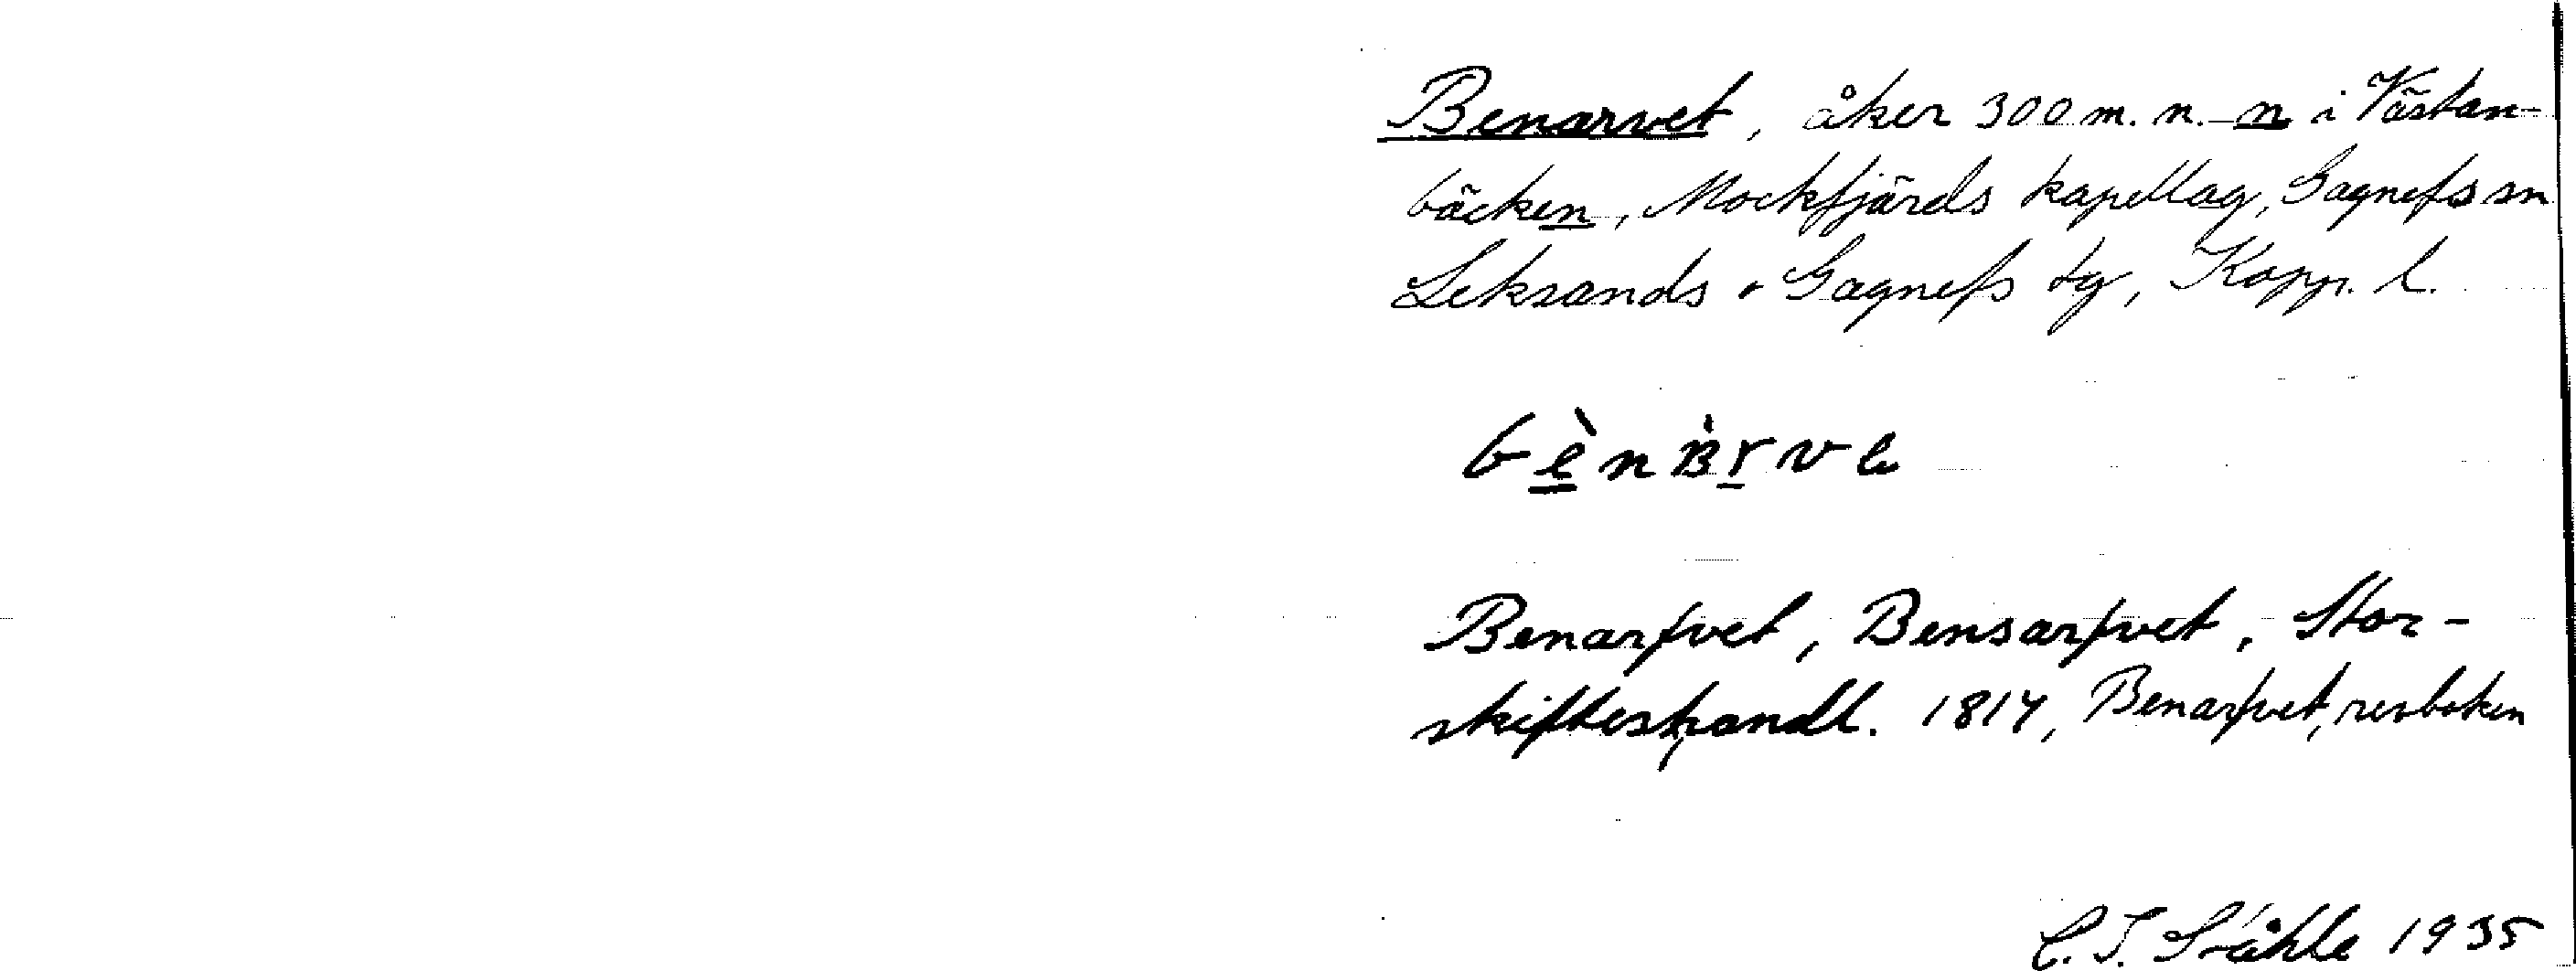 Benarvet, åker 300 m. n. n i Västan-
bäcken, Mockfjärds kapellag, Gagnefs sn
Leksands o Gagnefs tg, Kopp. l.
Benarfvet, Bensarfvet, Stor-
skifteshandl. 1817, Benarfvet, revboken
C. I. Ståhle 1935